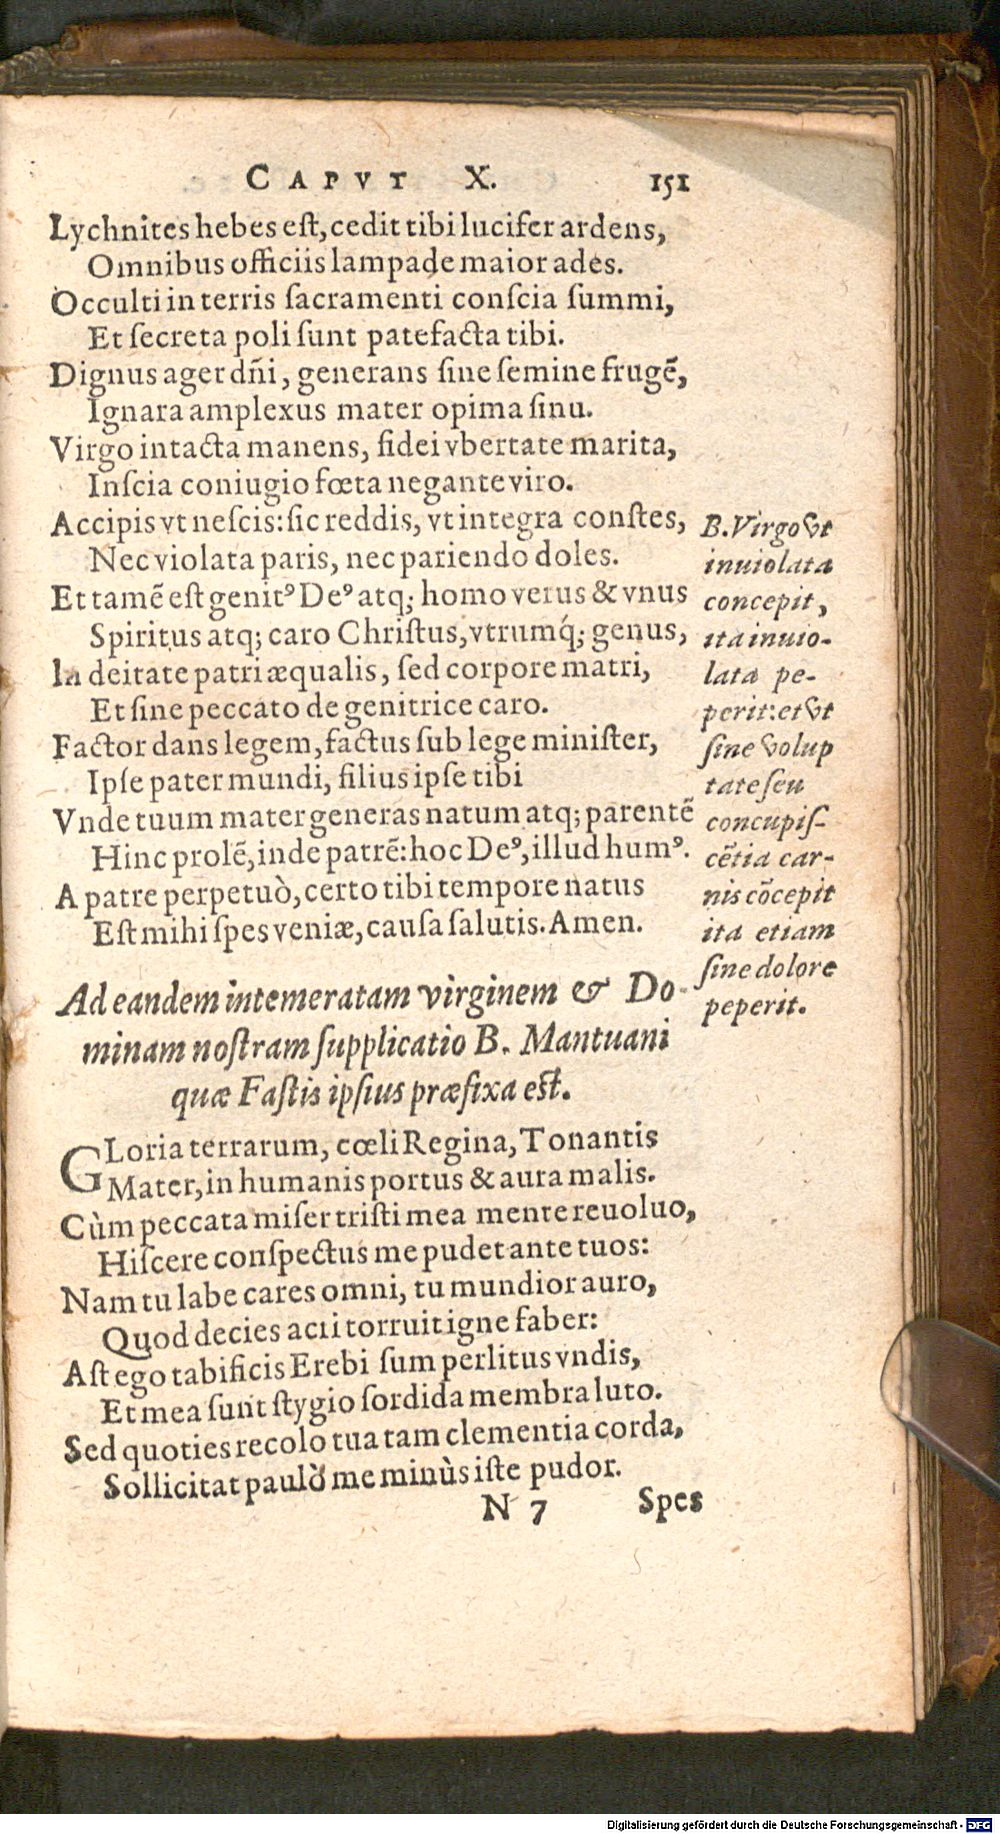 CAPVT X. 151
Lychnites hebes est, cedit tibi lucifer ardens,
Omnibus officiis lampade maior ades.
Occulti in terris sacramenti conscia summi,
Et secreta poli sunt patefacta tibi.
Dignus ager dñi, generans sine semine frugẽ,
Ignara amplexus mater opima sinu.
Virgo intacta manens, fidei vbertate marita,
Inscia coniugio fœta negante viro.
Accipis vt nescis: sic reddis, vt integra constes,
Nec violata paris, nec pariendo doles.
Et tamẽ est genitꝰ Deꝰ atq; homo verus & vnus
Spiritus atq; caro Christus, vtrumq́; genus,
In deitate patri æqualis, sed corpore matri,
Et sine peccato de genitrice caro.
Factor dans legem, factus sub lege minister,
Ipse pater mundi, filius ipse tibi
Vnde tuum mater generas natum atq; parentẽ
Hinc prolẽ, inde patrẽ: hoc Deꝰ, illud humꝰ.
A patre perpetuò, certo tibi tempore natus
Est mihi spes veniæ, causa salutis. Amen.
B. Virgo vt
inuiolata
concepit,
ita inuio-
lata pe-
perit: et vt
sine volup
tate seu
concupis-
cẽtia car-
nis cõcepit
ita etiam
sine dolore
peperit.
Ad eandem intemeratam virginem & Do-
minam nostram supplicatio B. Mantuani
quæ Fastis ipsius præfixa est.
GLoria terrarum, cœli Regina, Tonantis
Mater, in humanis portus & aura malis.
Cùm peccata miser tristi mea mente reuoluo,
Hiscere conspectus me pudet ante tuos:
Nam tu labe cares omni, tu mundior auro,
Quod decies acri torruit igne faber:
Ast ego tabificis Erebi sum perlitus vndis,
Et mea sunt stygio sordida membra luto.
Sed quoties recolo tua tam clementia corda,
Sollicitat paulò me minùs iste pudor.
N 7 Spes
Digitalisierung gefördert durch die Deutsche Forschungsgemeinschaft - DFG